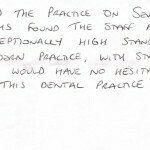 THE PRACTICE ON SEV
FOUND THE STAFF A
EPTIONALLY HIGH STAN
PRACTICE, WITH STA
WOULD HAVE NO HESIT
THIS DENTAL PRACTICE